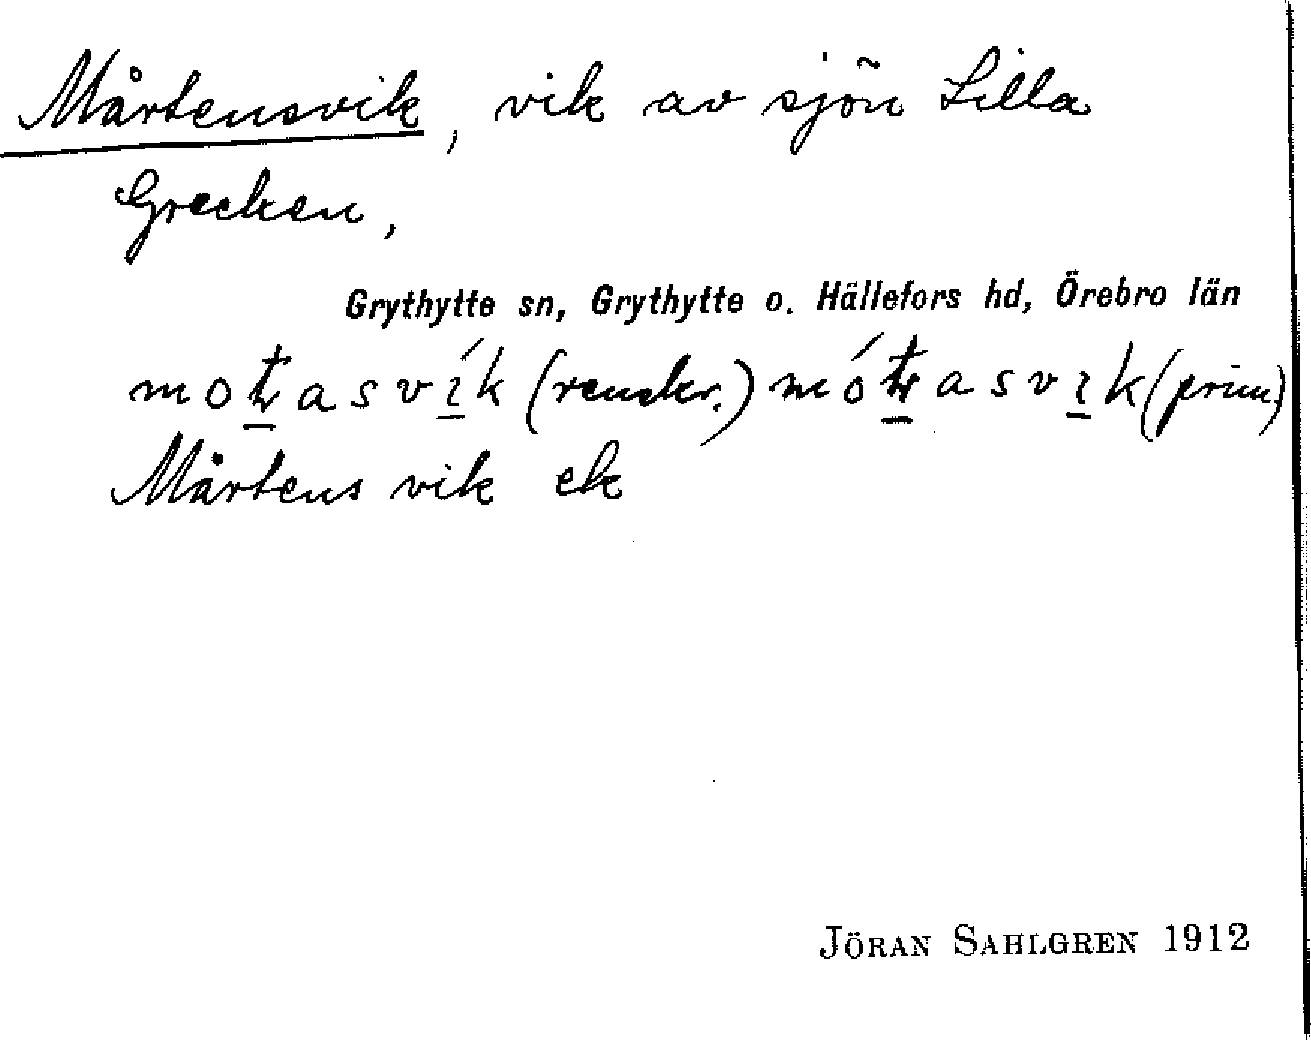 Mårtensvik, vik av sjön Lilla
Grecken,
Grythytte sn, Grythytte o. Hällefors hd, Örebro län
(prim.)
Mårtens vik ek
JÖRAN SAHLGREN 1912